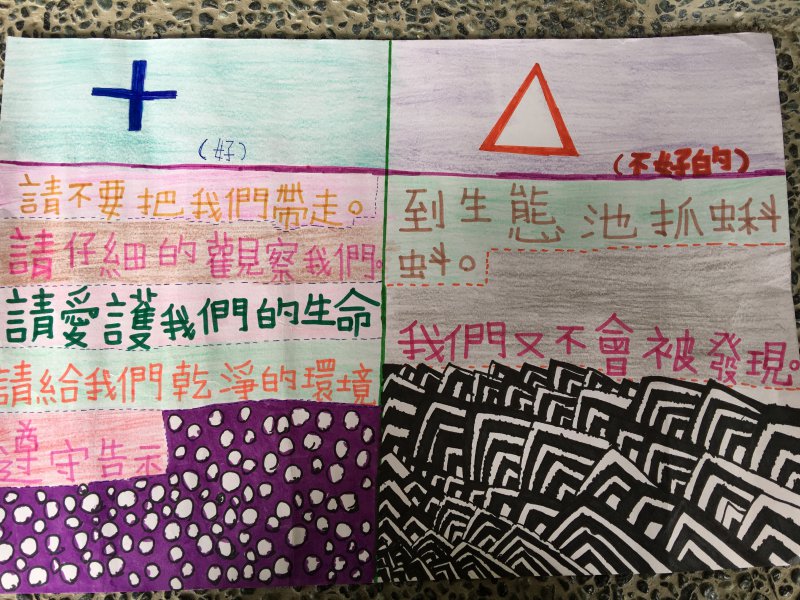 (好)
請不要把我們帶走。
請仔細的觀察我們。
請愛護我們的生命
請給我們乾淨的環境
遵守告示
(不好的)
到生態池抓蝌
蚪。
我們又不會被發現。